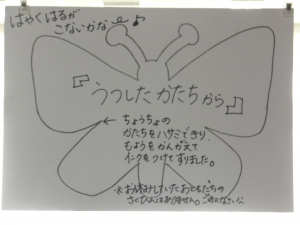 はやくはるが
こないかな♪
『うつしたかたちから』
← ちょうちょの
かたちをハサミできり、
もようをかんがえて
インクをつけてすりました。
※お休みしていたおともだちの
さくひんはありません。ごめんなさい